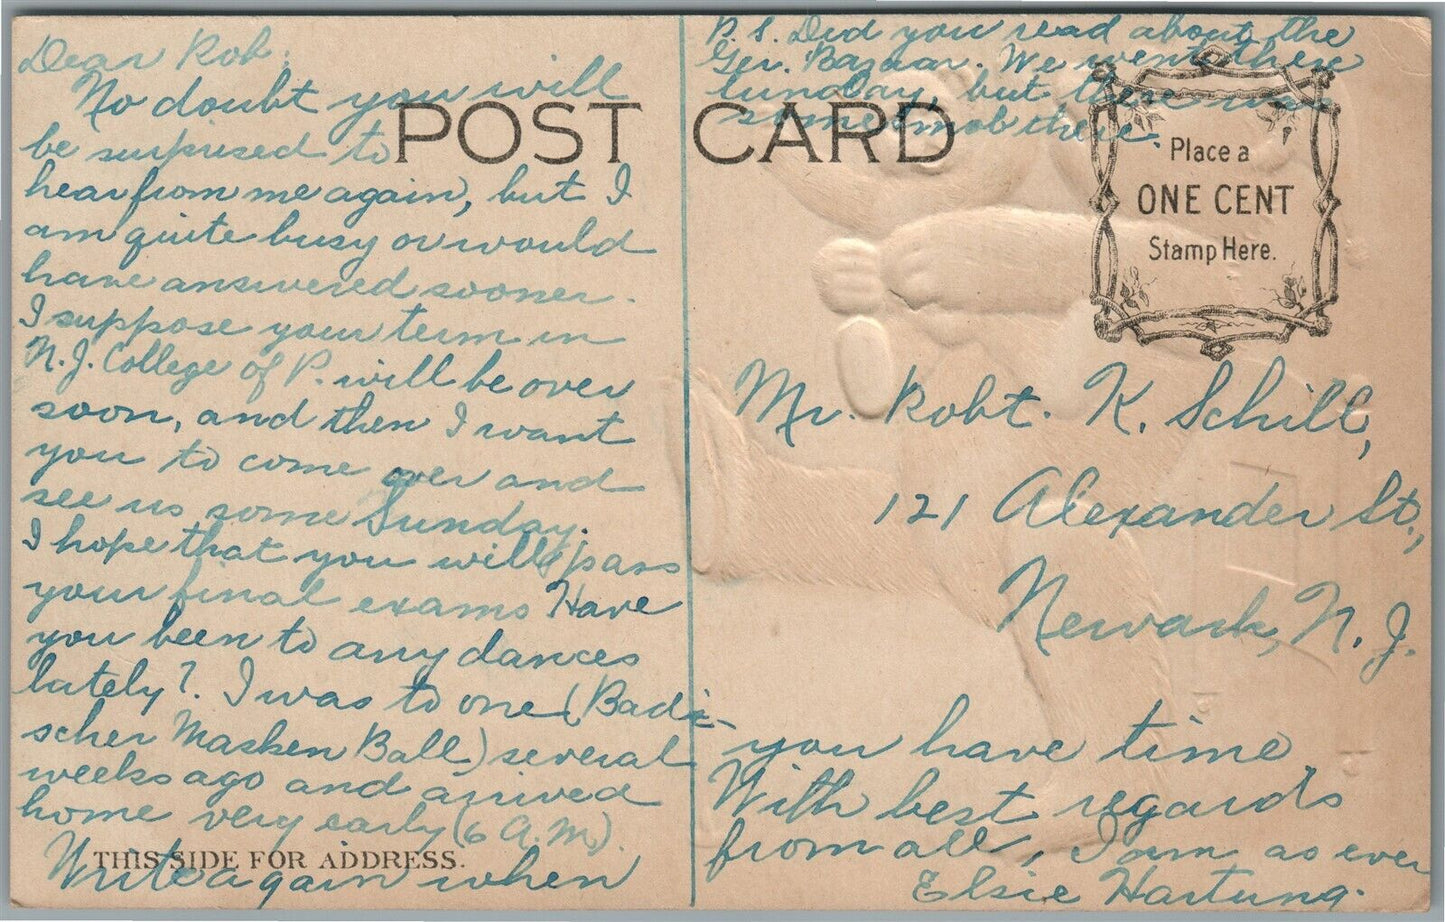 Dear Rob:
No doubt you will
be surprised to
hear from me again, but I
am quite busy or would
have answered sooner.
I suppose your term in
N.J. College of P. will be over
soon, and then I want
you to come over and
see us some Sunday.
I hope that you will pass
your final exams Have
you been to any dances
lately? I was to one (Badi-
scher Masken Ball) several
weeks ago and arrived
home very early (6 A.M.).
Write again when
THIS SIDE FOR ADDRESS.
you have time.
With best regards
from all, I am as ever
Elsie Hartung.
P.S. Did you read about the
Ger. Bazaar. We went there
Sunday, but there was
some mob there.
POST CARD
Place a
ONE CENT
Stamp Here.
Mr. Robt. K. Schill,
121 Alexander St.,
Newark, N.J.